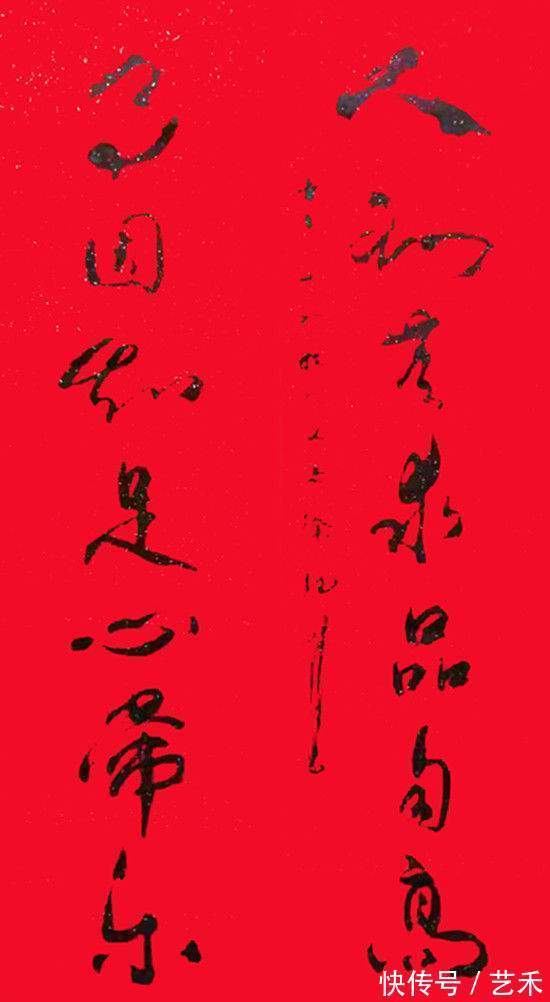 人到无求品自高
事因知足心常乐
快传号 / 艺禾